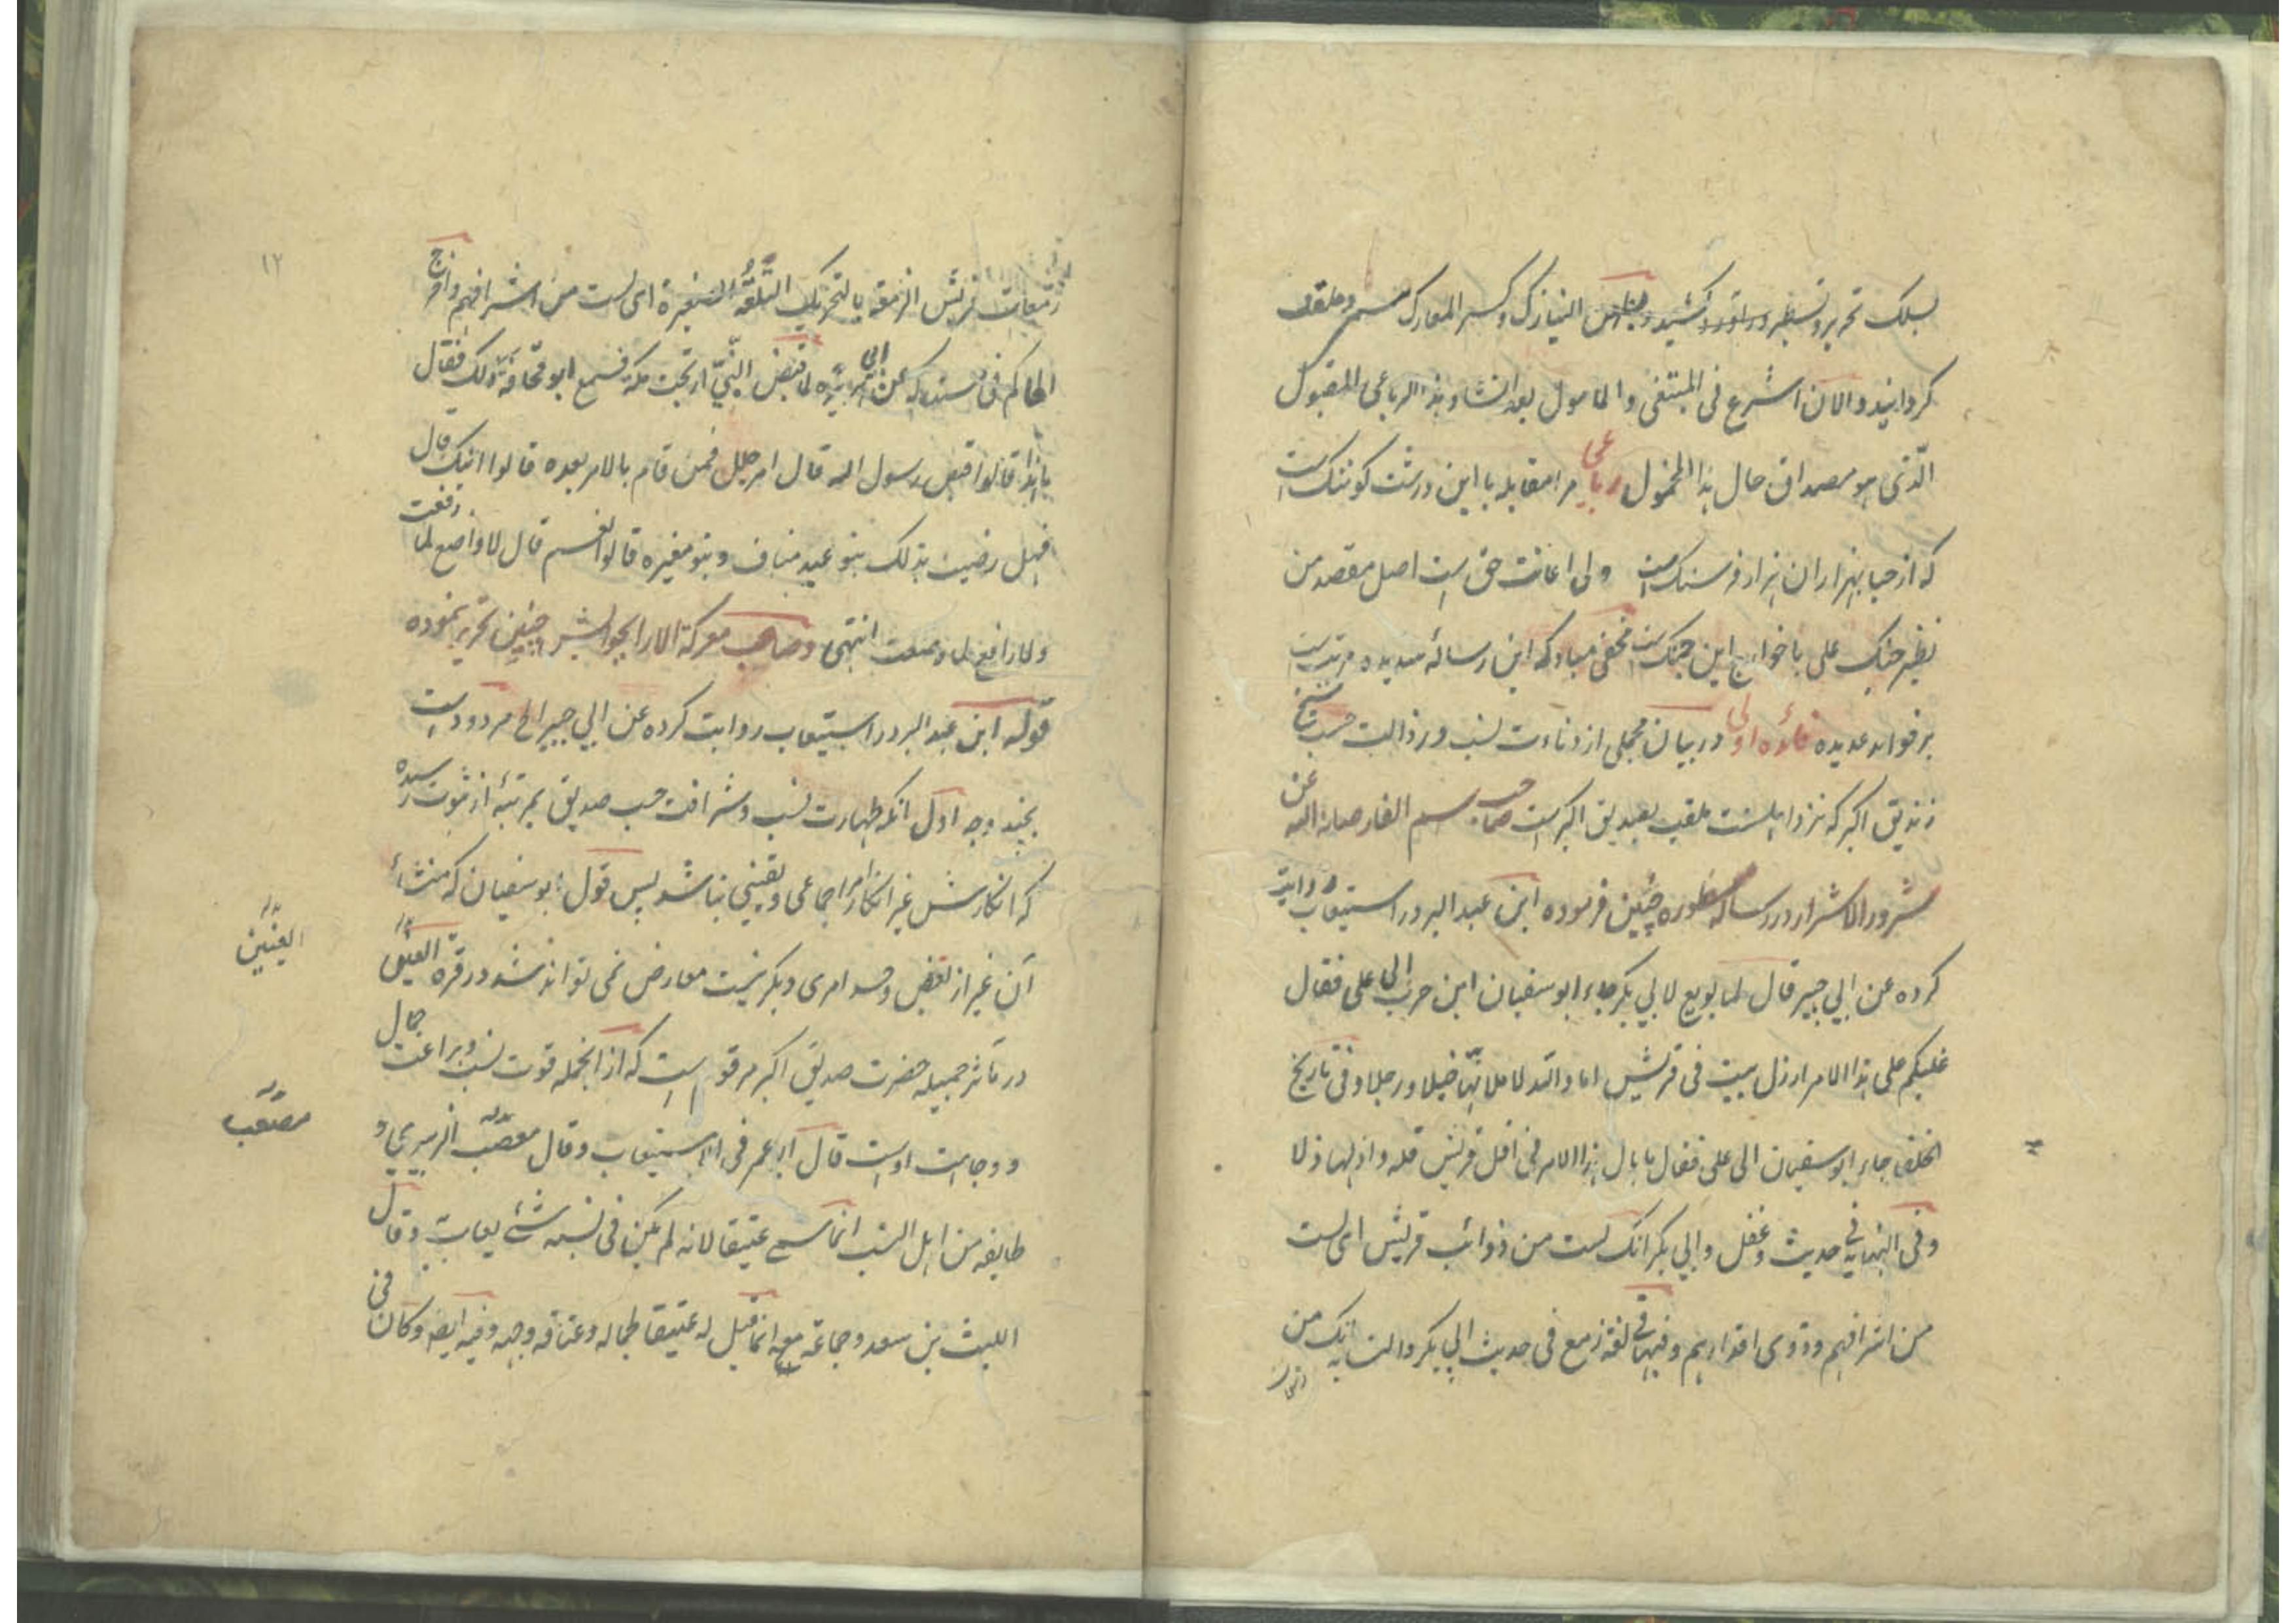 بسلک تحریر و تسطیر در آورد کشید النیازک و کسر المعارک مسمی و ملقب
کردانید و الان اشرع فی المبتغی و المامول بعد انشاء هذا الرباعی المقبول
الذی هو مصداق حال هذا الخمول رباعی مرا مقابله با این درشت کو ننک است
که از حیا بهزاران هزار فرسنک است ولی اعانت حق است اصل مقصد من
نظیر جنک علی با خوارج این جنک است مخفی مباد که این رساله سدیده مرتب است
بر فواید عدیده فائده اولی در بیان مجملی از دناءت نسب و رذالت حسب شیخ
زندیق اکبر که نزد اهلسنت ملقب بصدیق اکبر است صاحب سهم الفار صانه الله عن
شرور الاشرار در رساله مسطوره چنین فرموده ابن عبد البر در استیعاب روایت
کرده عن ابی جبیر قال لما بویع لابی بکر جاء ابو سفیان ابن حرب الی علی فقال
غلبکم علی هذا الامر ارذل بیت فی قریش اما والله لاملانها خیلا و رجلا و فی تاریخ
الخلفا جاء ابو سفیان الی علی فقال ما بال هذا الامر فی اقل قریش قله و اذلها ذلا
و فی النهایه فی حدیث دغفل و ابی بکر انک لست من ذوائب قریش ای لست
من اشرافهم و ذوی اقدارهم و فیها فی لغة زمع فی حدیث ابی بکر و النسابه انک من
زمعات
۱۲
زمعات قریش الزمعة بالتحریک التلعة الصغیرة ای لست من اشرافهم و اخرج
الحاکم فی مستدرکه عن ابی هریره لما قبض النبی ارتجت مکة فسمع ابو قحافة ذلک فقال
ما هذا قالوا قبض رسول الله قال امر جلل فمن قام بالامر بعده قالوا ابنک قال
فهل رضیت بذلک بنو عبد مناف و بنو مغیره قالوا نعم قال لا واضع لما رفعت
ولا رافع لما وضعت انتهی و صاحب معرکة الارا بجوابش چنین تحریر نموده
قوله ابن عبد البر در استیعاب روایت کرده عن ابی جبیر الخ مردود است
بچند وجه اول انکه طهارت نسب و شرافت حسب صدیق بمرتبهٔ از ثبوت رسیده
که انکارش غیر انکار امر اجماعی و یقینی نباشد پس قول ابو سفیان که منشاء
آن غیر از بغض و حسد امری دیکر نیست معارض نمی تواند شد در قرة العینین
در مآثر جمیله حضرت صدیق اکبر مرقوم است که از انجمله قوت نسب و براعت جمال
و وجاهت اوست قال ابو عمر فی الاستیعاب و قال مصعب الزبیری و
طایفه من اهل النسب انما سمی عتیقا لانه لم یکن فی نسبه شئ یعاب به و قال
اللیث بن سعد و جماعة معه انما قیل له عتیقا لجماله و عتاقة وجهه و فیه ایضا و کان فی
العینین
مصعب